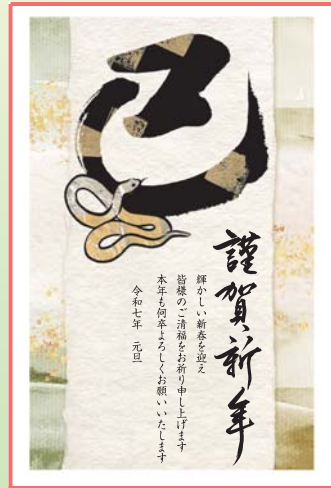 巳
謹賀新年
輝かしい新春を迎え
皆様のご清福をお祈り申し上げます
本年も何卒よろしくお願いいたします
令和七年 元旦